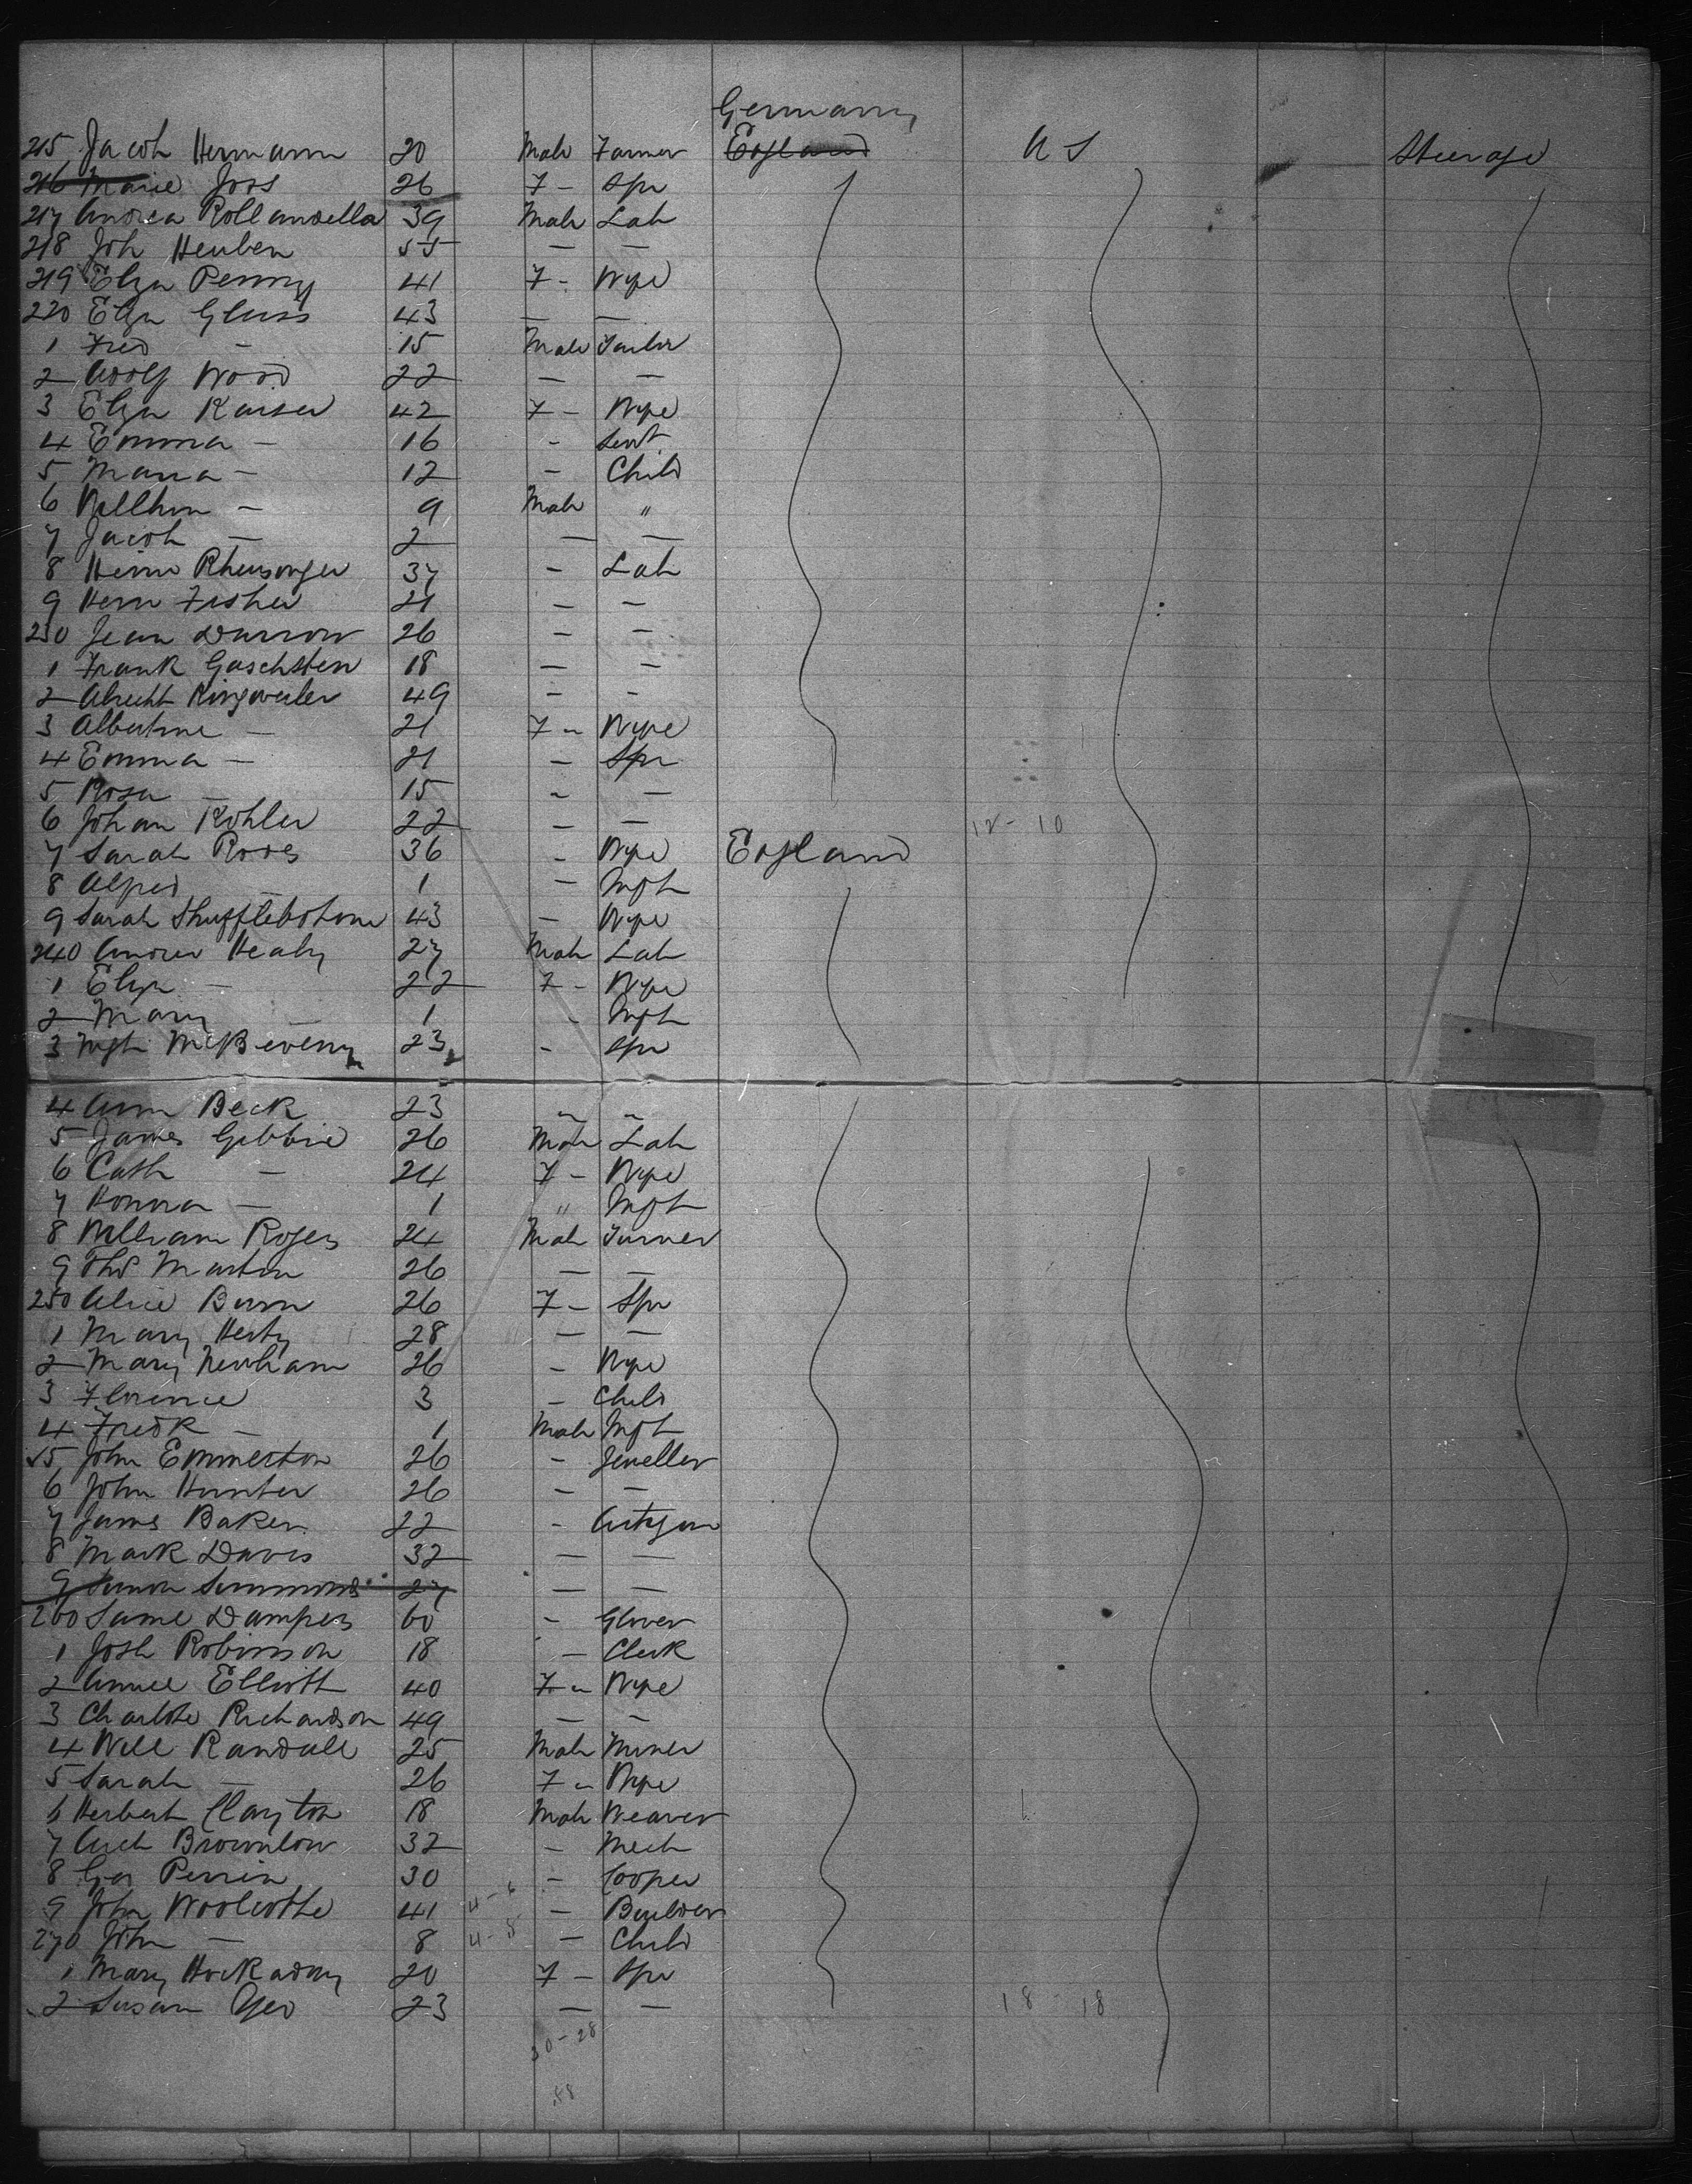 Germany
215 Jacob Hermann 20 Male Farmer England U S Steerage
216 Marie Joss 26 F - Spr
217 Andrea Rollandella 39 Male Lab
218 Joh Heuben 55 — —
219 Elza Penny 41 F - Wife
220 Elza Glass 43 — —
1 Fred — 15 Male Tailor
2 Adolf Wood 22 — —
3 Elza Kaiser 42 F - Wife
4 Emma — 16 - Servt
5 Maria — 12 - Child
6 Willhm — 9 Male "
7 Jacob — 2 — —
8 37 - Lab
9 Herm Fisher 21 — —
230 Jean Darrow 26 — —
1 Frank Gaschsten 18 — —
2 Albrecht Ringwerler 49 - -
3 Albertine — 21 F - Wife
4 Emma — 21 - Spr
5 Rosa — 15 - —
6 Johan Kohler 22 — — 12 - 10
7 Sarah Roves 36 - Wife England
8 Alfred — 1 - Inft
9 Sarah Shufflebotome 43 — Wife
240 Andrew Healy 27 Male Lab
1 Elza — 22 F - Wife
2 Mary — 1 - Inft
3 Mgt McBeveny 23 - Spr
4 Ann Beck 23 - -
5 James Gibbie 26 Male Lab
6 Cath — 24 F - Wife
7 Honora — 1 " Inft
8 William Rogers 24 Male Turner
9 Thos Martin 26 — —
250 Alice Burn 26 F - Spr
1 Mary Herty 28 — —
2 Mary Newham 26 - Wife
3 Florence 3 - Child
4 Fredk — 1 Male Inft
5 John Emmerton 26 - Jeweller
6 John Hunter 26 - -
7 James Baker 22 - Artizan
8 Mark Davis 32 — —
9 Simon Simmons 27 — —
260 Saml Dampers 60 - Glover
1 Josh Robinson 18 - Clerk
2 Annie Elliott 40 F - Wife
3 Charlotte Richardson 49 — —
4 Will Randall 25 Male Miner
5 Sarah — 26 F - Wife
6 Herbert Clayton 18 Male Weaver
7 Arch Brownlow 32 - Mech
8 Geo Perrin 30 - Cooper
9 John Woolcotte 41 4 - 6 - Builder
270 John — 8 4 - 5 — Child
1 Mary Hockaday 20 F - Spr
2 Susan Yeo 23 — — 18 - 18
30 - 28
58